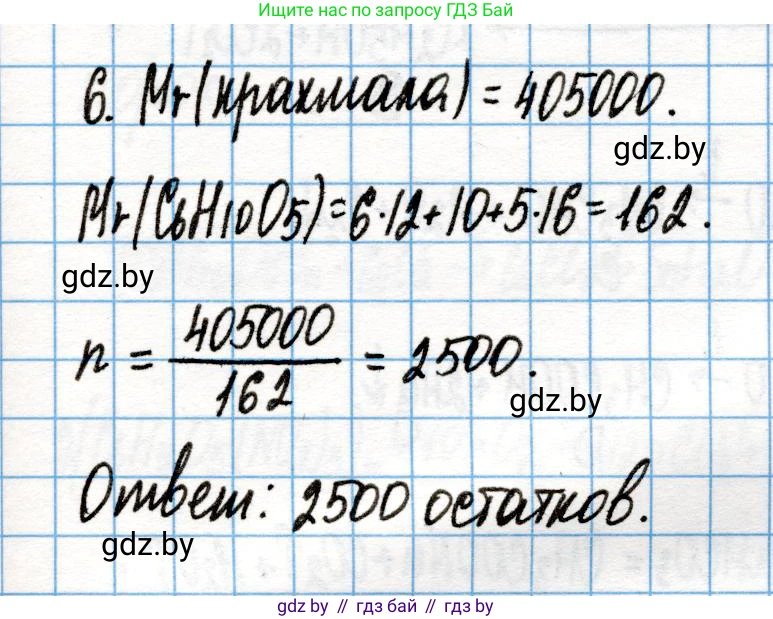 Ищите нас по запросу ГДЗ Бай
6. Mr(крахмала) = 405000.
gdz.by
Mr(C6H10O5)=6·12+10+5·16=162.
gdz.by
n = 405000/162 = 2500.
gdz.by
Ответ: 2500 остатков.
gdz.by
gdz by // гдз бай // gdz by